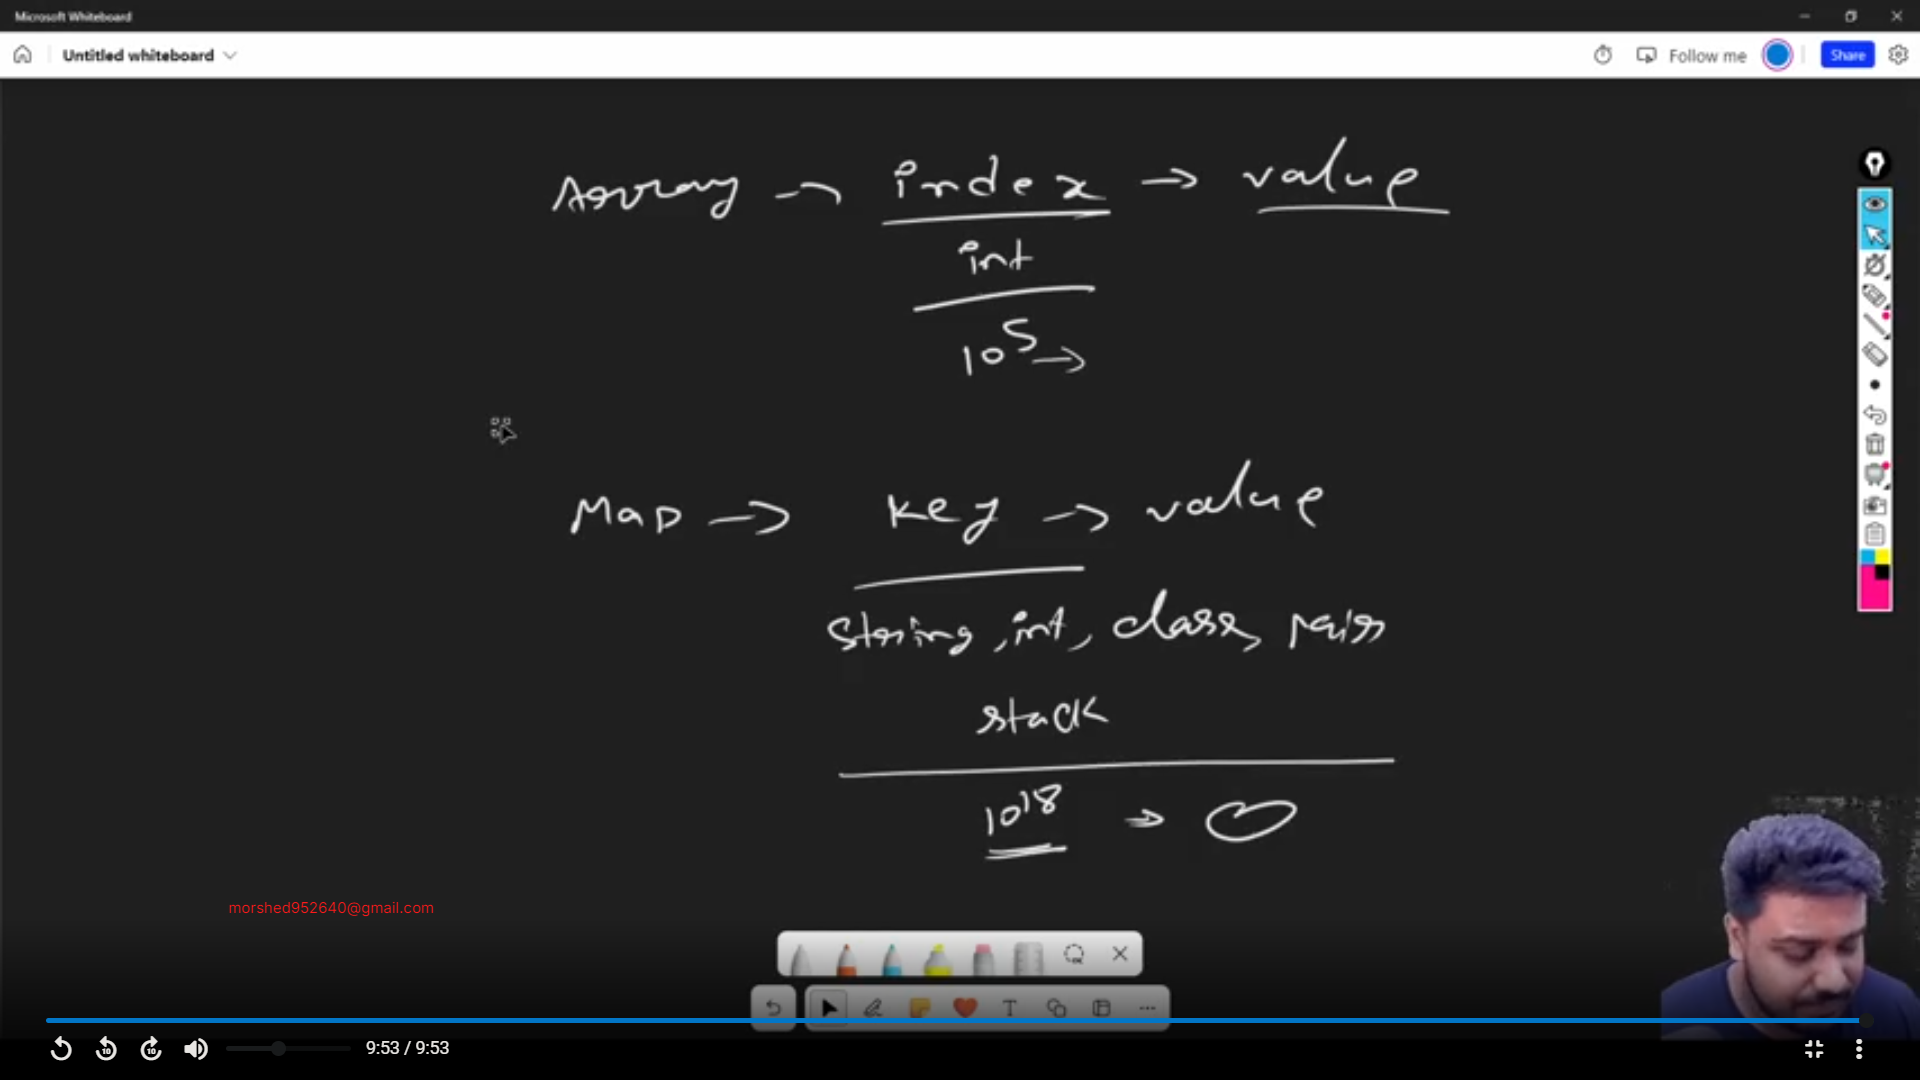 Microsoft Whiteboard
Untitled whiteboard
Follow me
Share
Array → index → value
int
10^5 →
Map → key → value
string, int, class, pair
stack
10^18 →
morshed952640@gmail.com
T
10
10
9:53 / 9:53